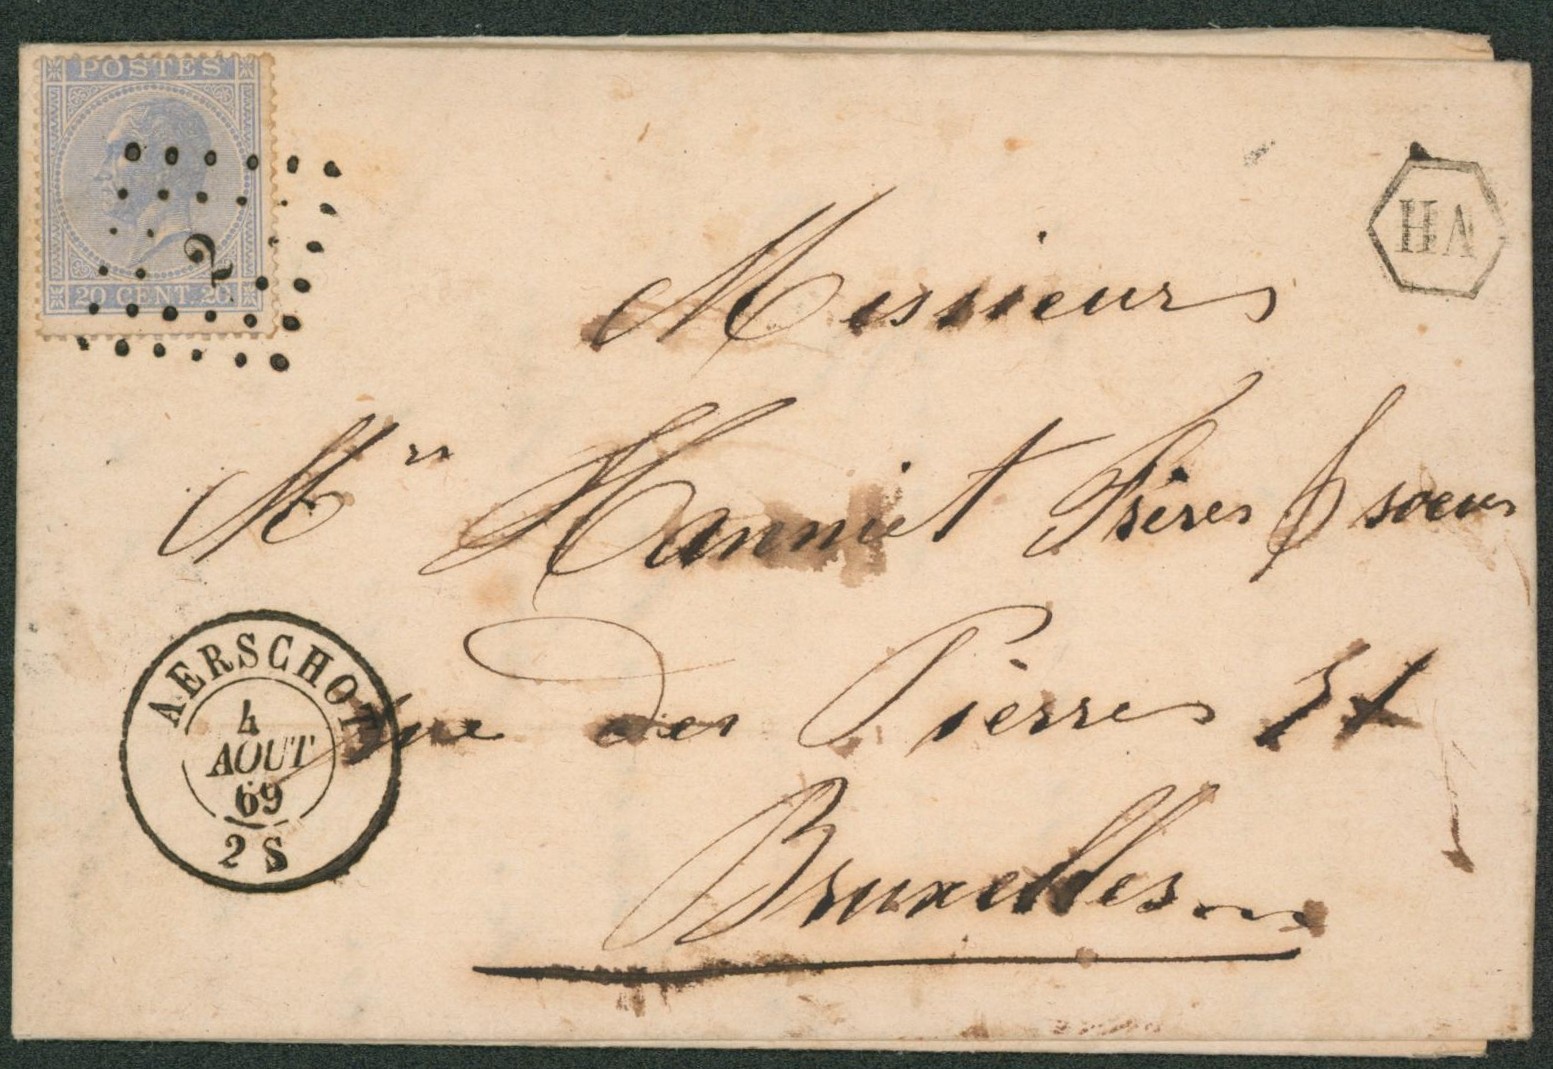 POSTES
20 CENT. 20
2
HA
Messieurs
Mrs Hanniet Frères & soeurs
rue des Pierres 51
Bruxelles
AERSCHOT
4
AOUT
69
2 S